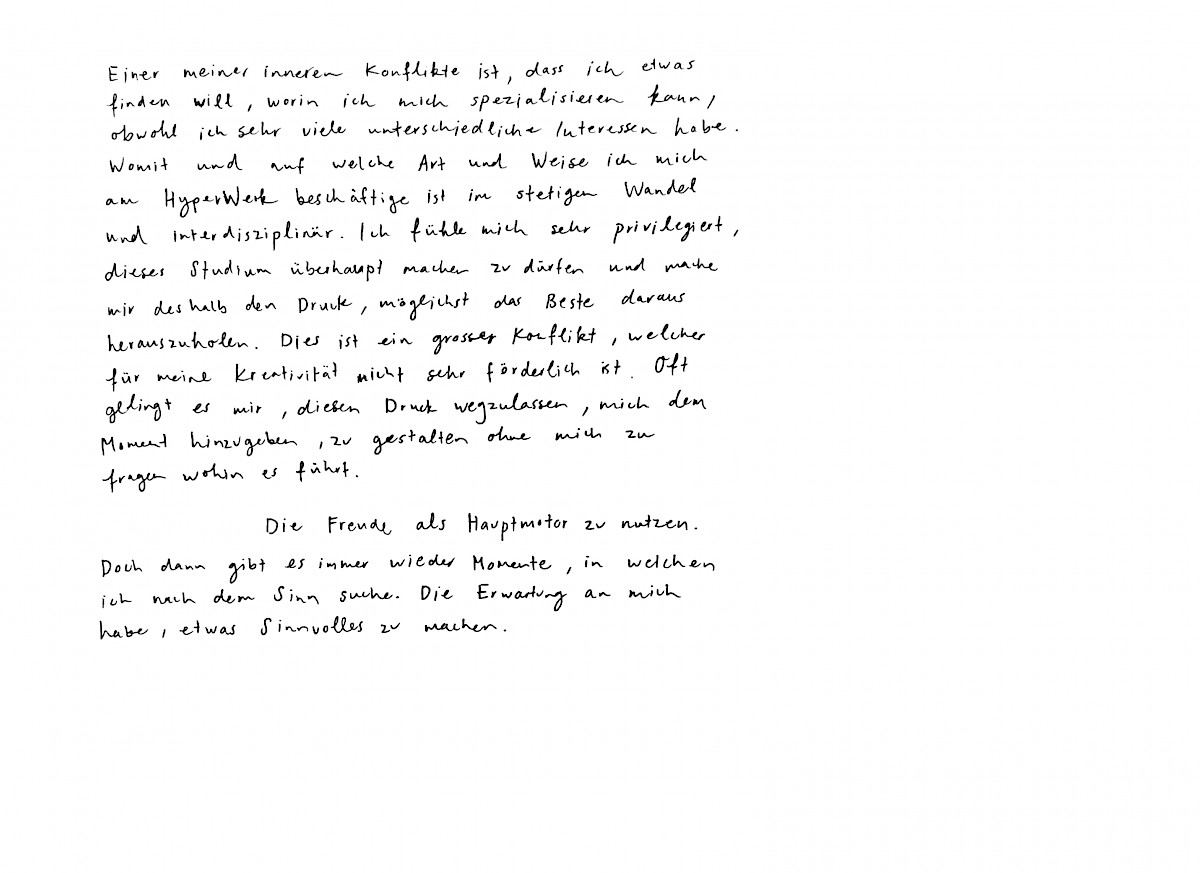 Einer meiner inneren Konflikte ist, dass ich etwas
finden will, worin ich mich spezialisieren kann,
obwohl ich sehr viele unterschiedliche Interessen habe.
Womit und auf welche Art und Weise ich mich
am HyperWerk beschäftige ist im stetigen Wandel
und interdisziplinär. Ich fühle mich sehr privilegiert,
dieses Studium überhaupt machen zu dürfen und mache
mir deshalb den Druck, möglichst das Beste daraus
herauszuholen. Dies ist ein grosser Konflikt, welcher
für meine Kreativität nicht sehr förderlich ist. Oft
gelingt es mir, diesen Druck wegzulassen, mich dem
Moment hinzugeben, zu gestalten ohne mich zu
fragen wohin es führt.
Die Freude als Hauptmotor zu nutzen.
Doch dann gibt es immer wieder Momente, in welchen
ich nach dem Sinn suche. Die Erwartung an mich
habe, etwas Sinnvolles zu machen.